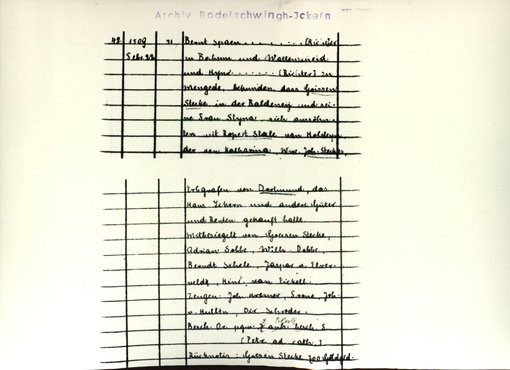 Archiv Bodelschwingh-Ickern
48 1509 21 Bernt Spaen . . . . . . . . [Richter
Febr. 22 zu Bochum und Wattenscheid
und [Richter] zu
Mengede, bekunden, dass Goissen
Stecke in der Baldeney und sei-
ne Frau Styna, sich aussöhn-
ten mit Ropert Stale van Holsteyn,
der von Katharina, Wwe. Joh. Steckes,
Erbgrafen von Dortmund, das
Haus Ickern und andere Güter
und Renten gekauft hatte.
Mitbesiegelt von Goessen Stecke,
Adrian Dobbe, Wilh. Dobbe,
Berndt Schele, Jaspar v. Elver-
veldt, Hinr. van Eickell.
Zeugen: Joh. Kremer, Frone, Joh.
v. Hulltn, Dir. Schroder.
Besch. Or. pgm. anh. besch. S
[Petr. ad cath.]
Rücknotiz: Goessen Stecke 700 Goldgld.